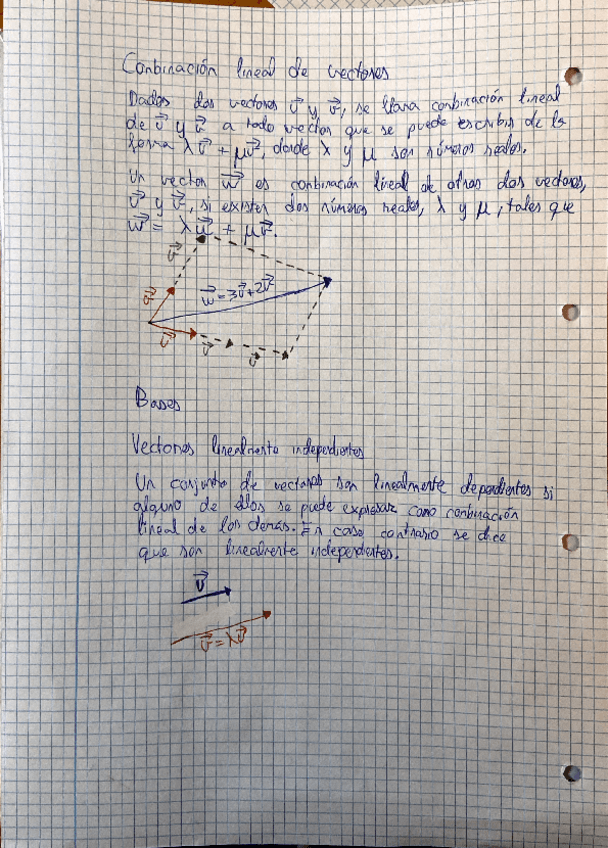 Combinación lineal de vectores
Dados dos vectores u⃗ y v⃗, se llama combinación lineal
de u⃗ y v⃗ a todo vector que se puede escribir de la
forma λu⃗ + μv⃗, donde λ y μ son números reales.
Un vector w⃗ es combinación lineal de otros dos vectores,
u⃗ y v⃗, si existen dos números reales, λ y μ, tales que
w⃗ = λu⃗ + μv⃗.
v⃗
v⃗
w⃗ = 3u⃗ + 2v⃗
u⃗
u⃗
u⃗
Bases
Vectores linealmente independientes
Un conjunto de vectores son linealmente dependientes si
alguno de ellos se puede expresar como combinación
lineal de los demás. En caso contrario se dice
que son linealmente independientes.
u⃗
v⃗ = λu⃗